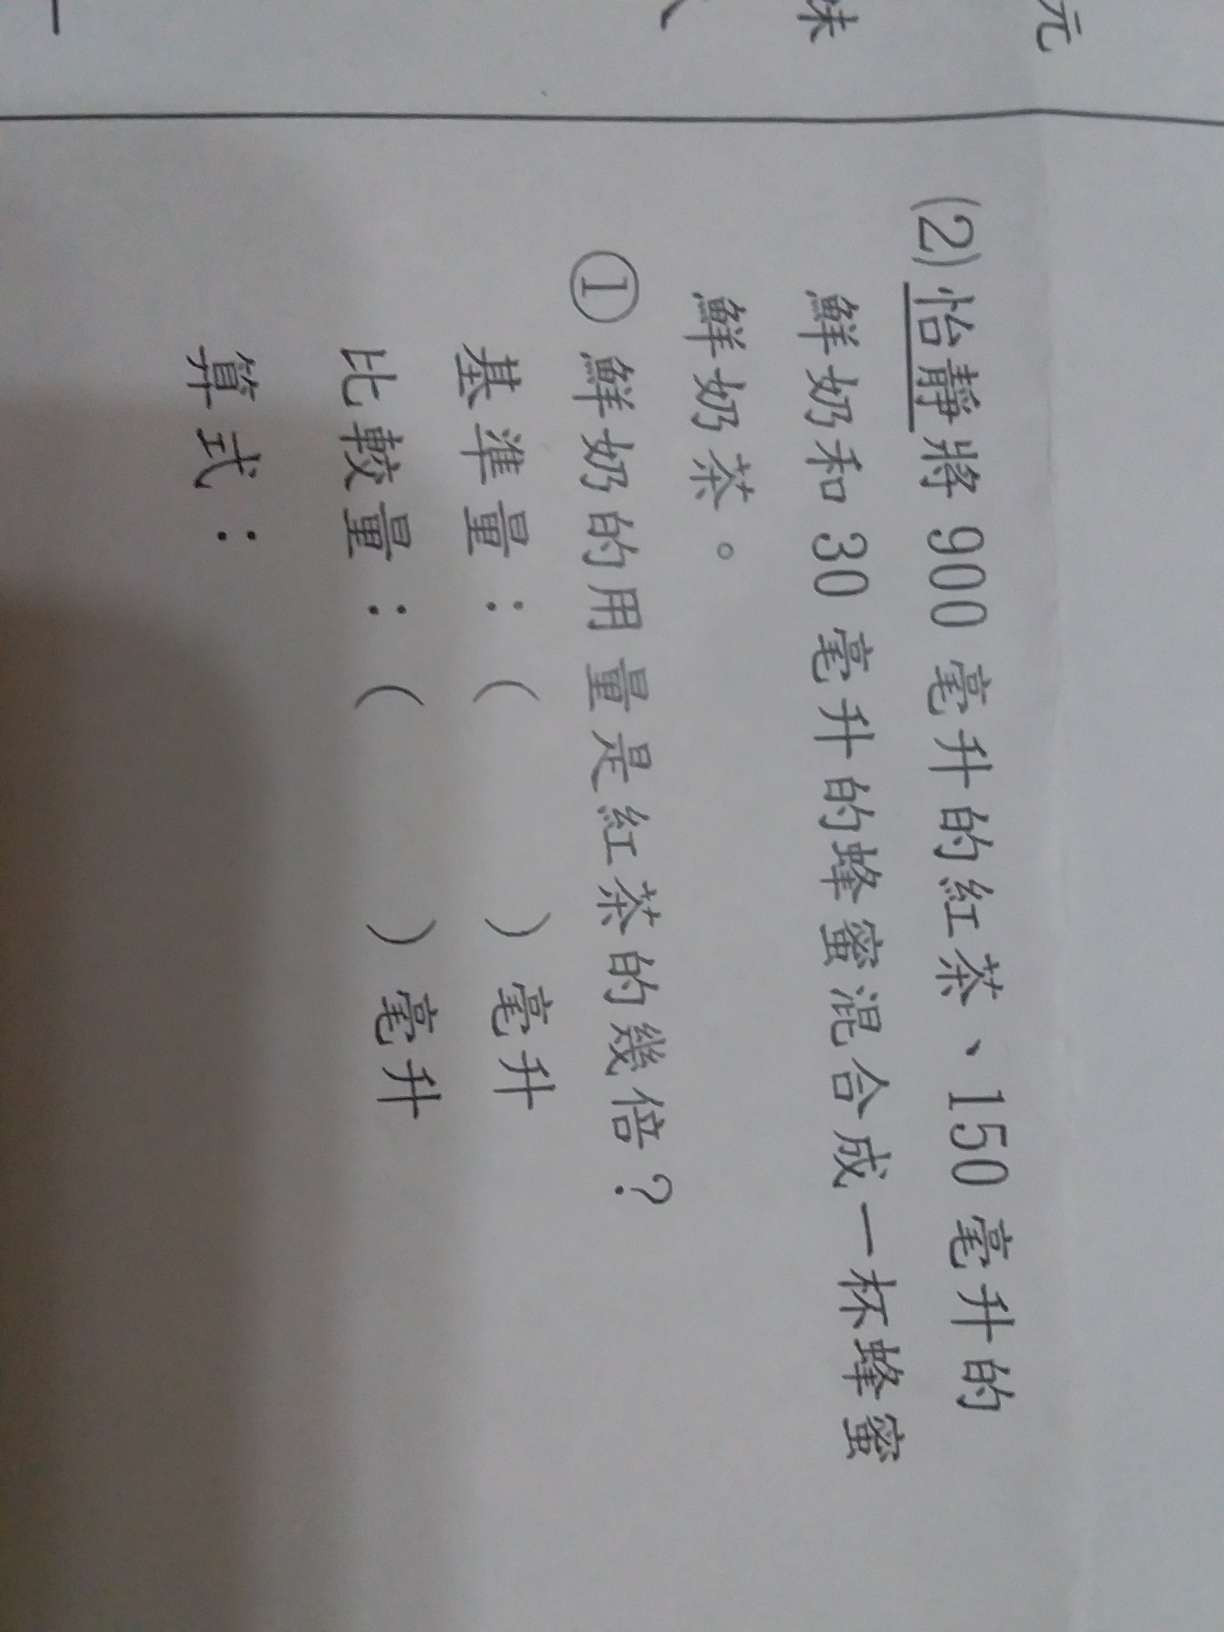 元
味
(2)怡靜將 900 毫升的紅茶、150 毫升的
鮮奶和 30 毫升的蜂蜜混合成一杯蜂蜜
鮮奶茶。
① 鮮奶的用量是紅茶的幾倍？
基準量：(　　　)毫升
比較量：(　　　)毫升
算式：